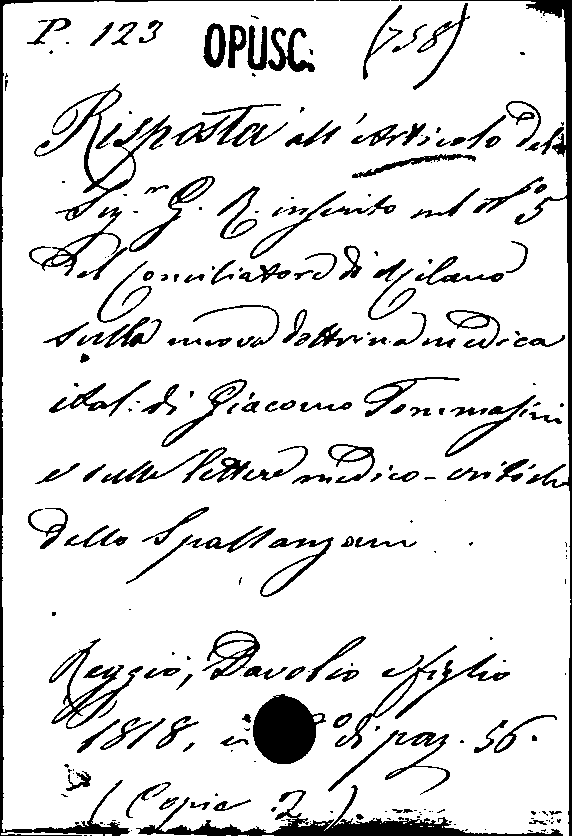 P. 123 OPUSC. (758)
Risposta all'Articolo del
Sig.r G. R. inserito nel No. 5
del Conciliatore di Milano
sulla nuova dottrina medica
ital: di Giacomo Tommasini
e sulle lettere medico-critiche
dello Spallanzani
Reggio, Davolio e figlio
1818, in º di pag. 56.
(Copie 2)